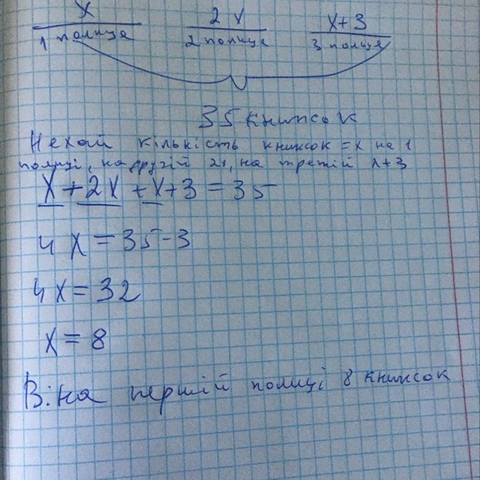 x 2x x+3
1 полица 2 полица 3 полиця
35 книжок
Нехай кількість книжок = x на 1
полиці, на другій 2x, на третій x+3
x + 2x + x + 3 = 35
4x = 35-3
4x = 32
x = 8
В: на першій полиці 8 книжок